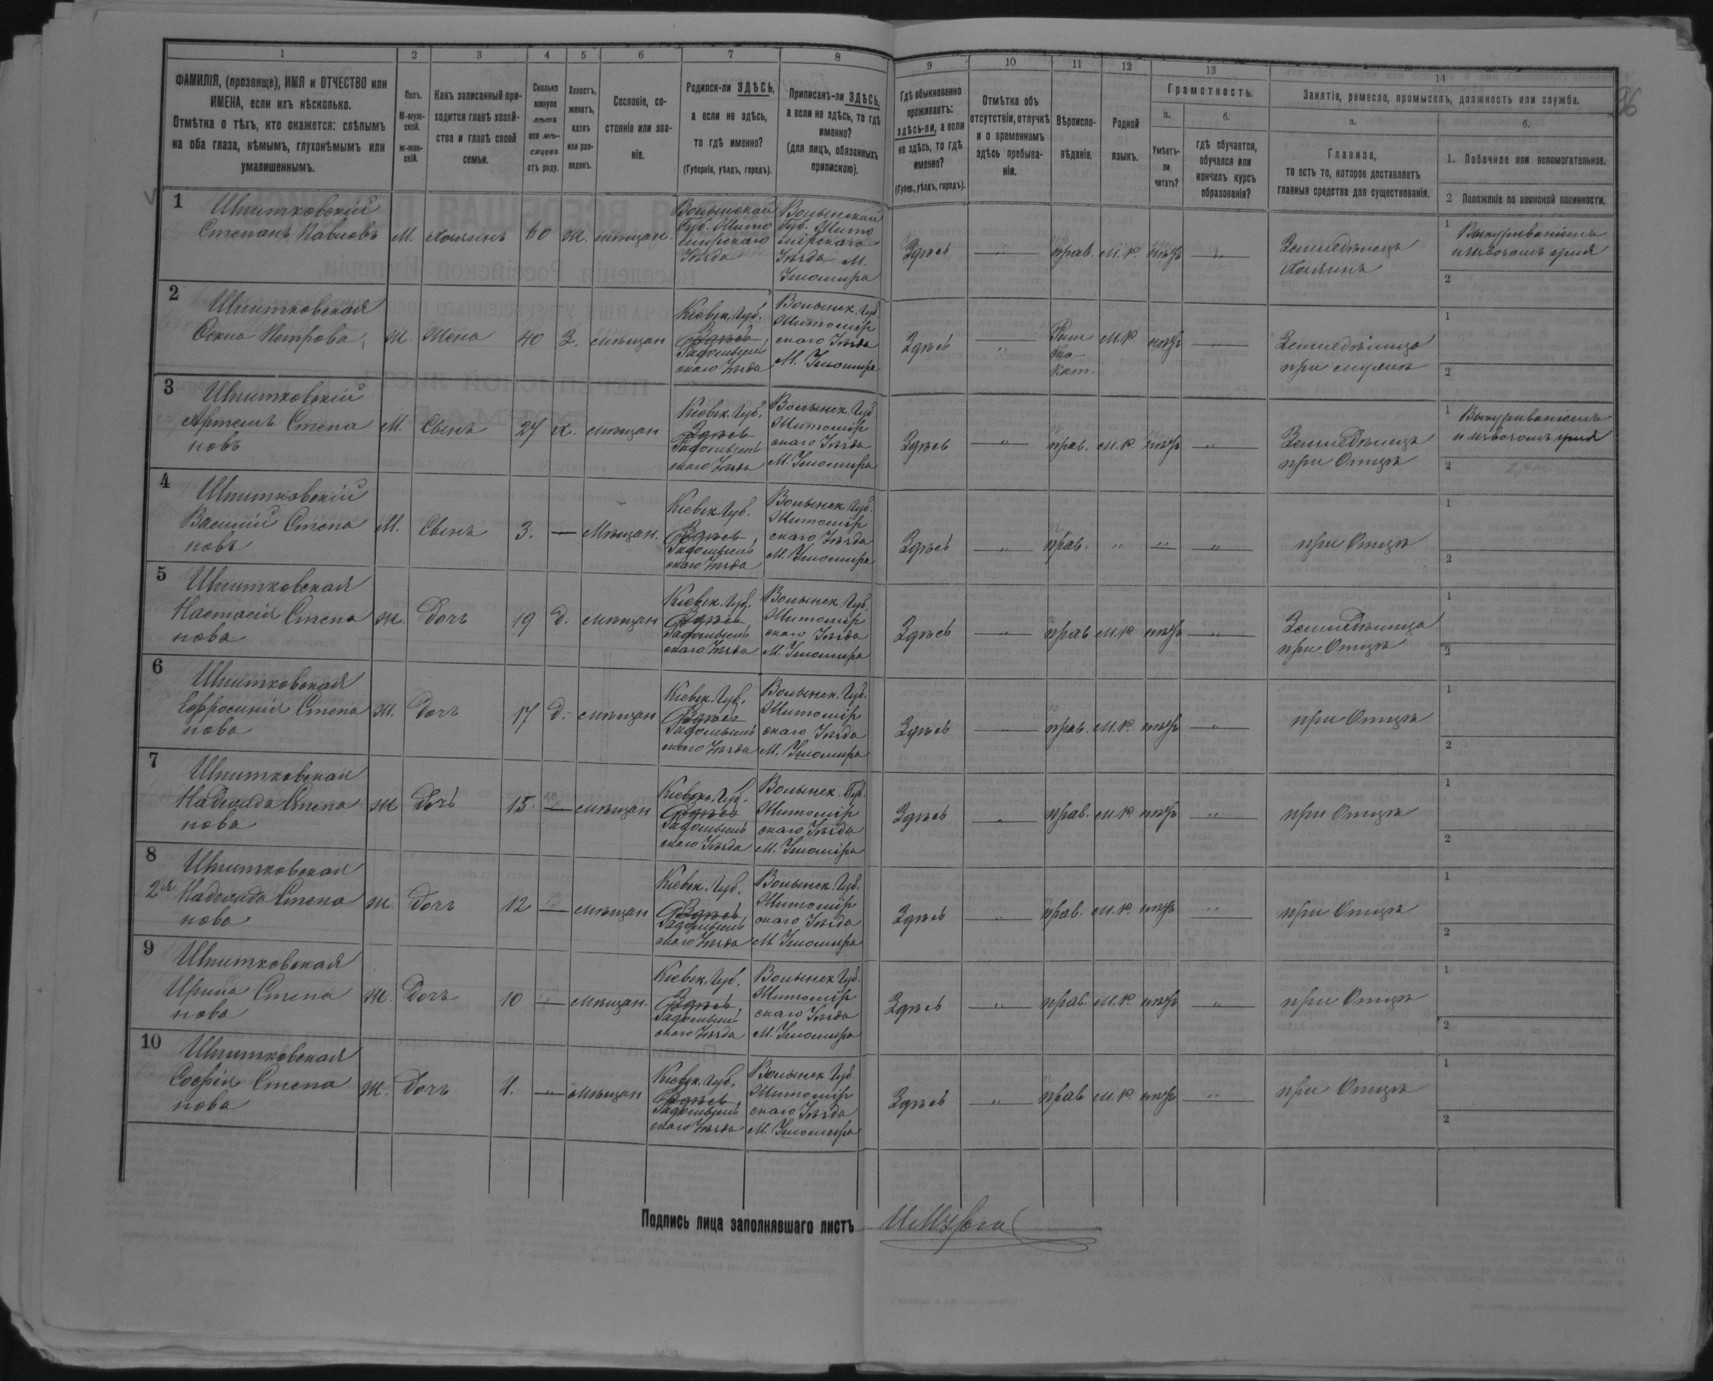 1 2 3 4 5 6 7 8 9 10 11 12 13 14
ФАМИЛІЯ, (прозвище), ИМЯ и ОТЧЕСТВО или
ИМЕНА, если ихъ нѣсколько.
Отмѣтка о тѣхъ, кто окажется: слѣпымъ
на оба глаза, нѣмымъ, глухонѣмымъ или
умалишеннымъ.
Полъ.
М-муж-
ской.
ж-жен-
скій.
Какъ записанный при-
ходится главѣ хозяй-
ства и главѣ своей
семьи.
Сколько
минуло
лѣтъ
или мѣ-
сяцевъ
отъ роду.
Холостъ,
женатъ,
вдовъ
или раз-
веденъ.
Сословіе, со-
стояніе или зва-
ніе.
Родился-ли ЗДѢСЬ,
а если не здѣсь,
то гдѣ именно?
(Губернія, уѣздъ, городъ).
Приписанъ-ли ЗДѢСЬ,
а если не здѣсь, то гдѣ
именно?
(для лицъ, обязанныхъ
припискою).
Гдѣ обыкновенно
проживаетъ:
здѣсь-ли, а если
не здѣсь, то гдѣ
именно?
(Губер., уѣздъ, городъ).
Отмѣтка объ
отсутствіи, отлучкѣ
и о временномъ
здѣсь пребыва-
ніи.
Вѣроиспо-
вѣданіе.
Родной
языкъ.
Грамотность.
а.
Умѣетъ-
ли
читать?
б.
гдѣ обучается,
обучался или
кончилъ курсъ
образованія?
Занятіе, ремесло, промыселъ, должность или служба.
а.
Главное,
то есть то, которое доставляетъ
главныя средства для существованія.
б.
1. Побочное или вспомогательное.
2 Положеніе по воинской повинности.
96
1 Шпитковскій
Степанъ Павловъ М. Хозяинъ 60 ж. мѣщан. Волынской Губ. Житомірскаго Уѣзда Волынской Губ. Житомірскаго Уѣзда М. Ушомира Здѣсь „ прав. м.р. нѣтъ „ Земледѣлецъ Хозяинъ
1
2
2 Шпитковская
Петрова ж. Жена 40 З. мѣщан Кіевск. Губ. Здѣсь, Радомысльскаго Уѣзда Волынск. Губ. Житомірскаго Уѣзда М. Ушомира Здѣсь „ Рим ско Кат. м.р. нѣтъ „ Земледѣлица при мужѣ
1
2
3 Шпитковскій
Артемъ Степановъ М. Сынъ 27 х. мѣщан Кіевск. Губ. Здѣсь, Радомысльскаго Уѣзда Волынск. Губ. Житомірскаго Уѣзда М. Ушомира Здѣсь „ прав. м.р. нѣтъ „ Земледѣлецъ при Отцѣ
1
2
4 Шпитковскій
Василій Степановъ М. Сынъ 3. — Мѣщан. Кіевск. Губ. Здѣсь, Радомысльскаго Уѣзда Волынск. Губ. Житомірскаго Уѣзда М. Ушомира Здѣсь „ прав. „ „ „ при Отцѣ
1
2
5 Шпитковская
Настасія Степанова ж. Дочь 19 д. мѣщан Кіевск. Губ. Здѣсь, Радомысльскаго Уѣзда Волынск. Губ. Житомірскаго Уѣзда М. Ушомира Здѣсь „ прав м.р. нѣтъ „ Земледѣлица при Отцѣ
1
2
6 Шпитковская
Ефросинія Степанова ж. Дочь 17 д. мѣщан Кіевск. Губ. Здѣсь, Радомысльскаго Уѣзда Волынск. Губ. Житомірскаго Уѣзда М. Ушомира Здѣсь „ прав. м.р. нѣтъ „ при Отцѣ
1
2
7 Шпитковская
Надежда Степанова ж Дочь 15. — мѣщан Кіевск. Губ. Здѣсь, Радомысльскаго Уѣзда Волынск. Губ. Житомірскаго Уѣзда М. Ушомира Здѣсь „ прав. м.р. нѣтъ „ при Отцѣ
1
2
8 Шпитковская
2я Надежда Степанова ж. Дочь 12 — мѣщан Кіевск. Губ. Здѣсь, Радомысльскаго Уѣзда Волынск. Губ. Житомірскаго Уѣзда М. Ушомира Здѣсь „ прав. м.р. нѣтъ „ при Отцѣ
1
2
9 Шпитковская
Ирина Степанова ж. Дочь 10 — мѣщан. Кіевск. Губ. Здѣсь, Радомысльскаго Уѣзда Волынск. Губ. Житомірскаго Уѣзда М. Ушомира Здѣсь „ прав. м.р. нѣтъ „ при Отцѣ
1
2
10 Шпитковская
Софія Степанова ж. Дочь — мѣщан Кіевск. Губ. Здѣсь, Радомысльскаго Уѣзда Волынск. Губ. Житомірскаго Уѣзда М. Ушомира Здѣсь „ прав м.р. нѣтъ „ при Отцѣ
1
2
Подпись лица заполнявшаго листъ